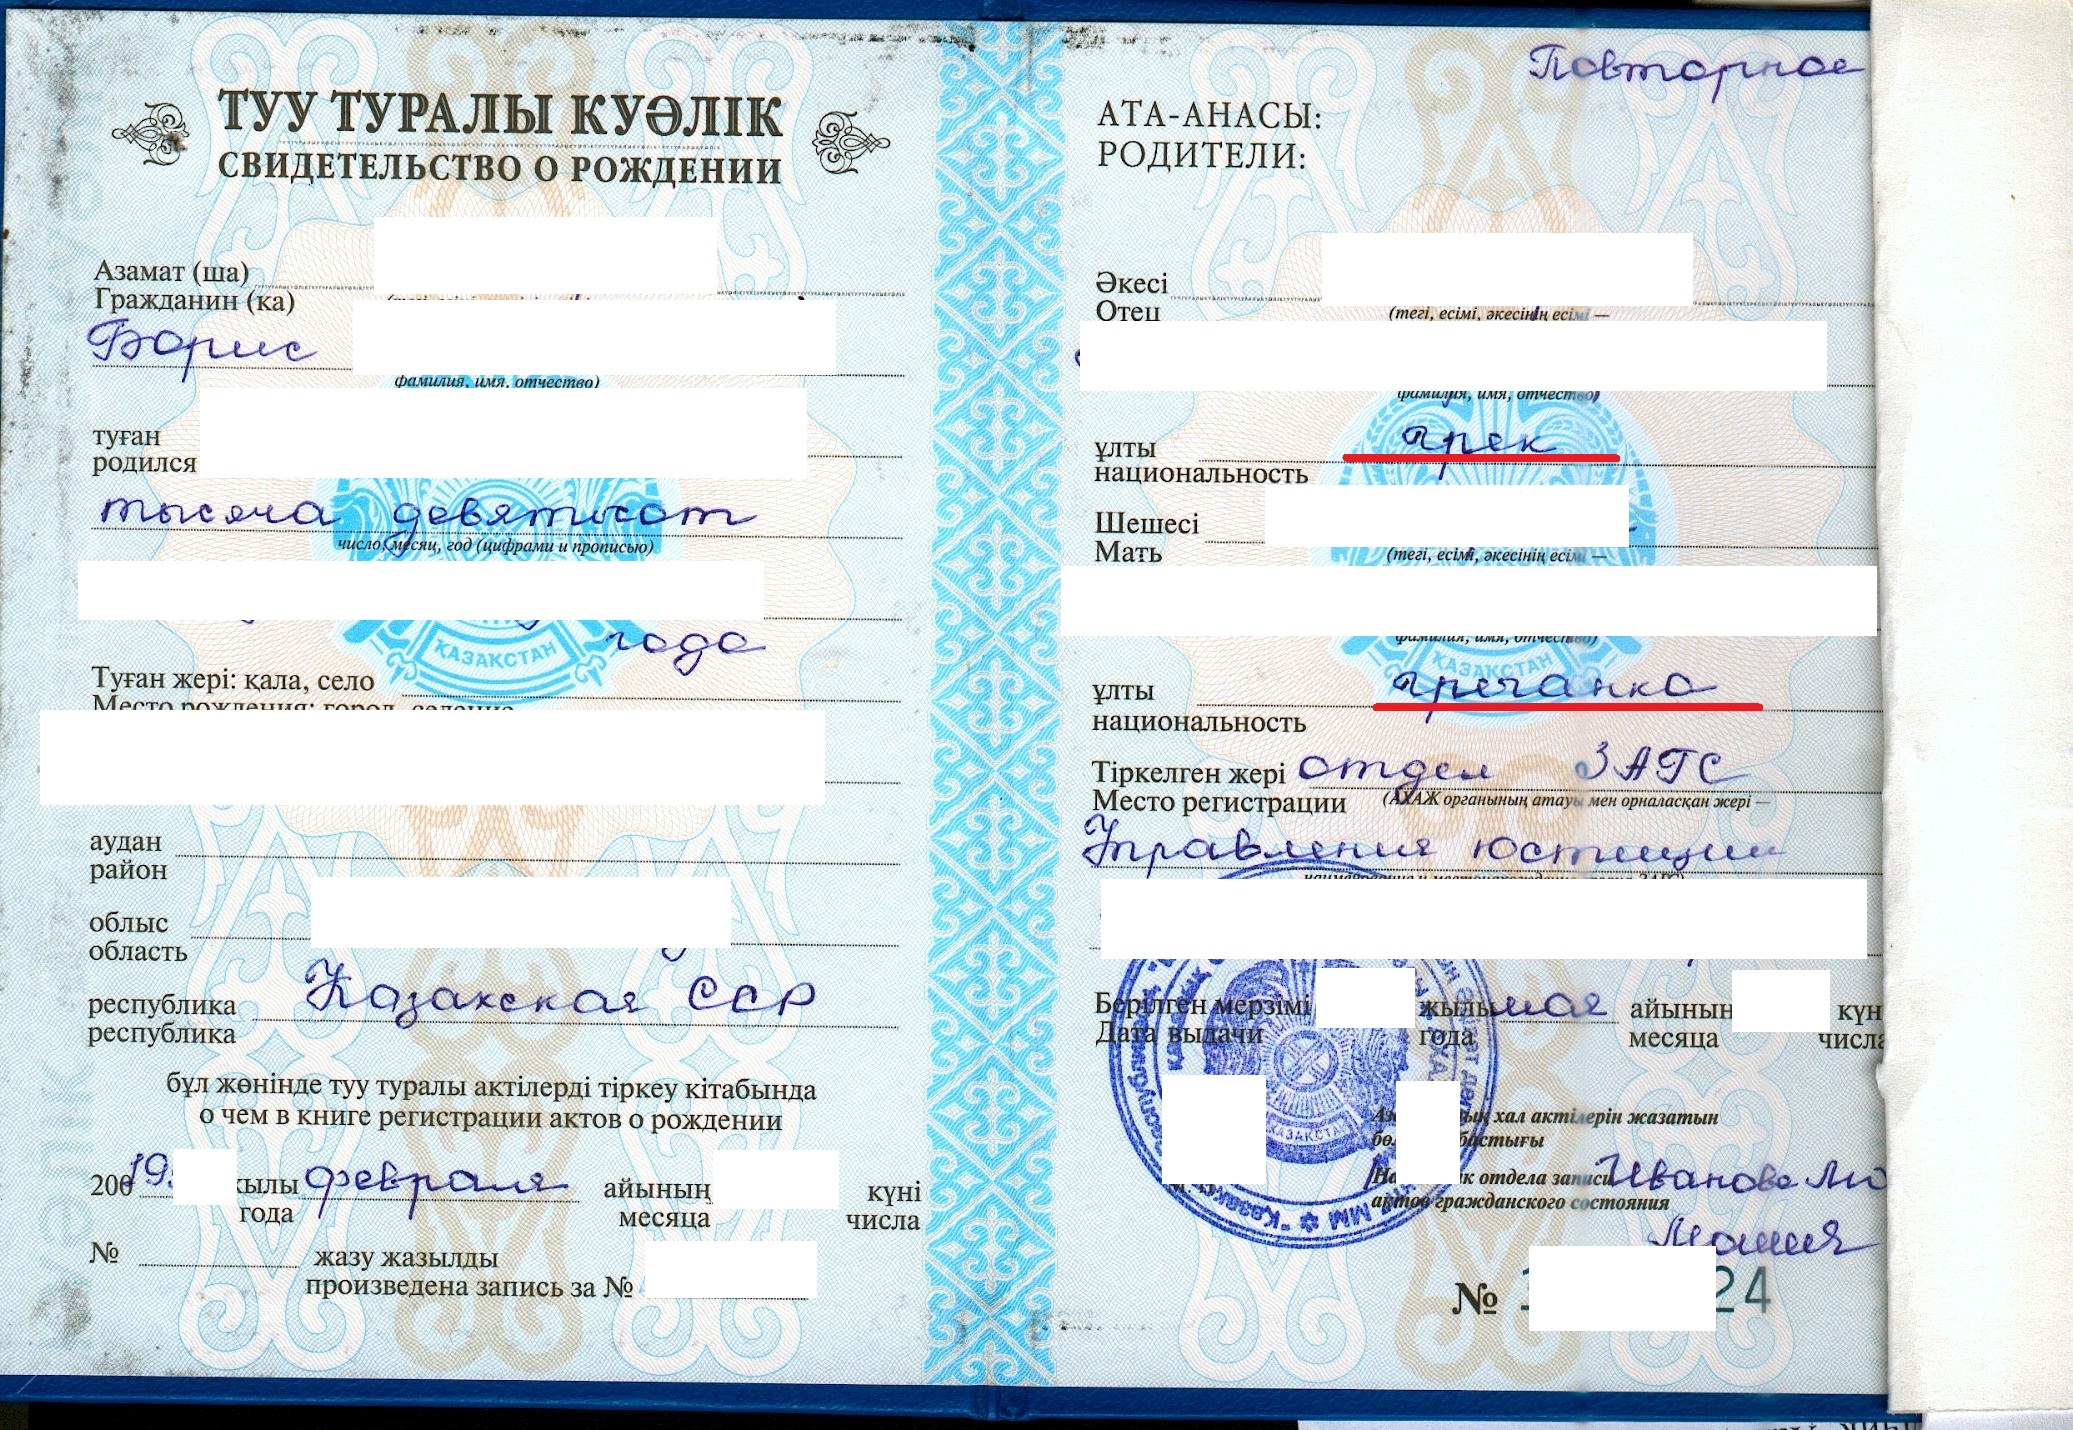 Повторное
ТУУ ТУРАЛЫ КУӘЛІК
СВИДЕТЕЛЬСТВО О РОЖДЕНИИ
Азамат (ша)
Гражданин (ка)
Борис
фамилия, имя, отчество)
туған
родился
тысяча девятьсот
число, месяц, год (цифрами и прописью)
года
ҚАЗАҚСТАН
Туған жері: қала, село
Место рождения: город, селение
аудан
район
облыс
область
республика Казахская ССР
республика
бұл жөнінде туу туралы актілерді тіркеу кітабында
о чем в книге регистрации актов о рождении
200 19 жылы февраля айының күні
года месяца числа
№ жазу жазылды
произведена запись за №
АТА-АНАСЫ:
РОДИТЕЛИ:
Әкесі
Отец (тегі, есімі, әкесінің есімі —
фамилия, имя, отчество)
ұлты грек
национальность
Шешесі
Мать (тегі, есімі, әкесінің есімі —
фамилия, имя, отчество)
ҚАЗАҚСТАН
ұлты гречанка
национальность
Тіркелген жері отдел ЗАГС
Место регистрации (АХАЖ органының атауы мен орналасқан жері —
Управления юстиции
Берілген мерзімі жылы мая айының күн
Дата выдачи года месяца числа
ҚАЗАҚСТАН
хал актілерін жазатын
бастығы
отдела записи Иванова
актов гражданского состояния
№ 24